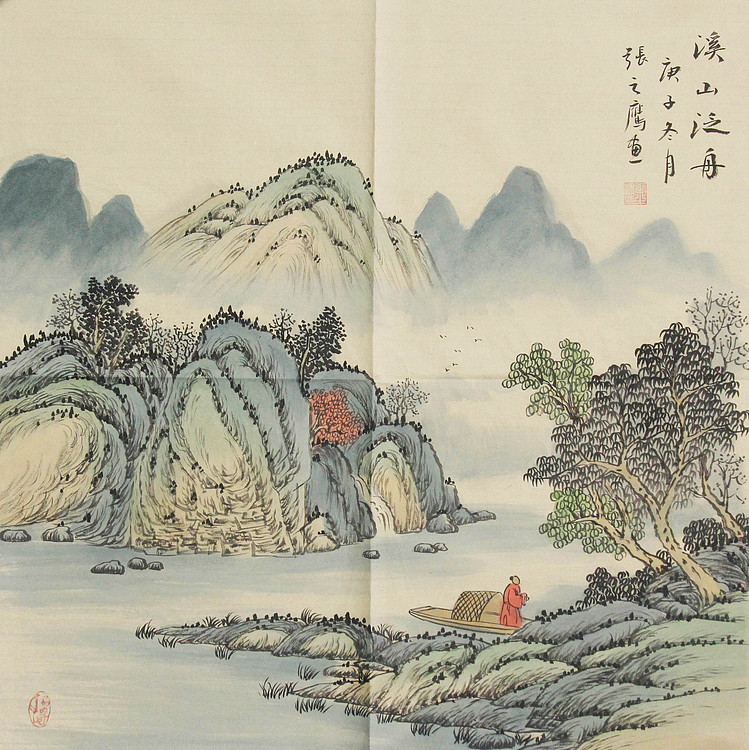 溪山泛舟
庚子冬月
張之鹰画